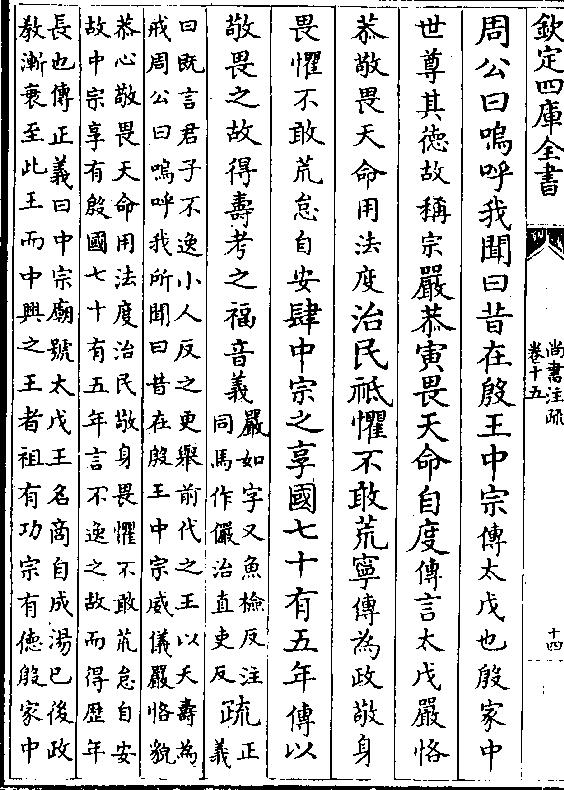 欽定四庫全書
尚書注疏
卷十五
十四
周公曰嗚呼我聞曰昔在殷王中宗傳太戊也殷家中
世尊其德故稱宗嚴恭寅畏天命自度傳言太戊嚴恪
恭敬畏天命用法度治民祗懼不敢荒寧傳為政敬身
畏懼不敢荒怠自安肆中宗之享國七十有五年傳以
敬畏之故得壽考之福音義嚴如字又魚檢反注
同馬作儼治直吏反疏正
義
曰既言君子不逸小人反之更舉前代之王以夭壽為
戒周公曰嗚呼我所聞曰昔在殷王中宗威儀嚴恪貌
恭心敬畏天命用法度治民敬身畏懼不敢荒怠自安
故中宗享有殷國七十有五年言不逸之故而得歷年
長也傳正義曰中宗廟號太戊王名商自成湯已後政
教漸衰至此王而中興之王者祖有功宗有德殷家中